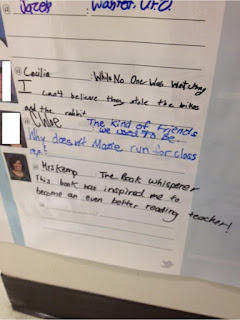 Jacob : Wanter. UFO.
Cecilia : While No One Was Watching
I can't believe they stole the bikes
and the rabbit
Chloe The Kind of Friends
we used to Be
Why doesn't Marie run for class
rep?
Mrs Kemp The Book Whisperer
This book has inspired me to
become an even better reading teacher!